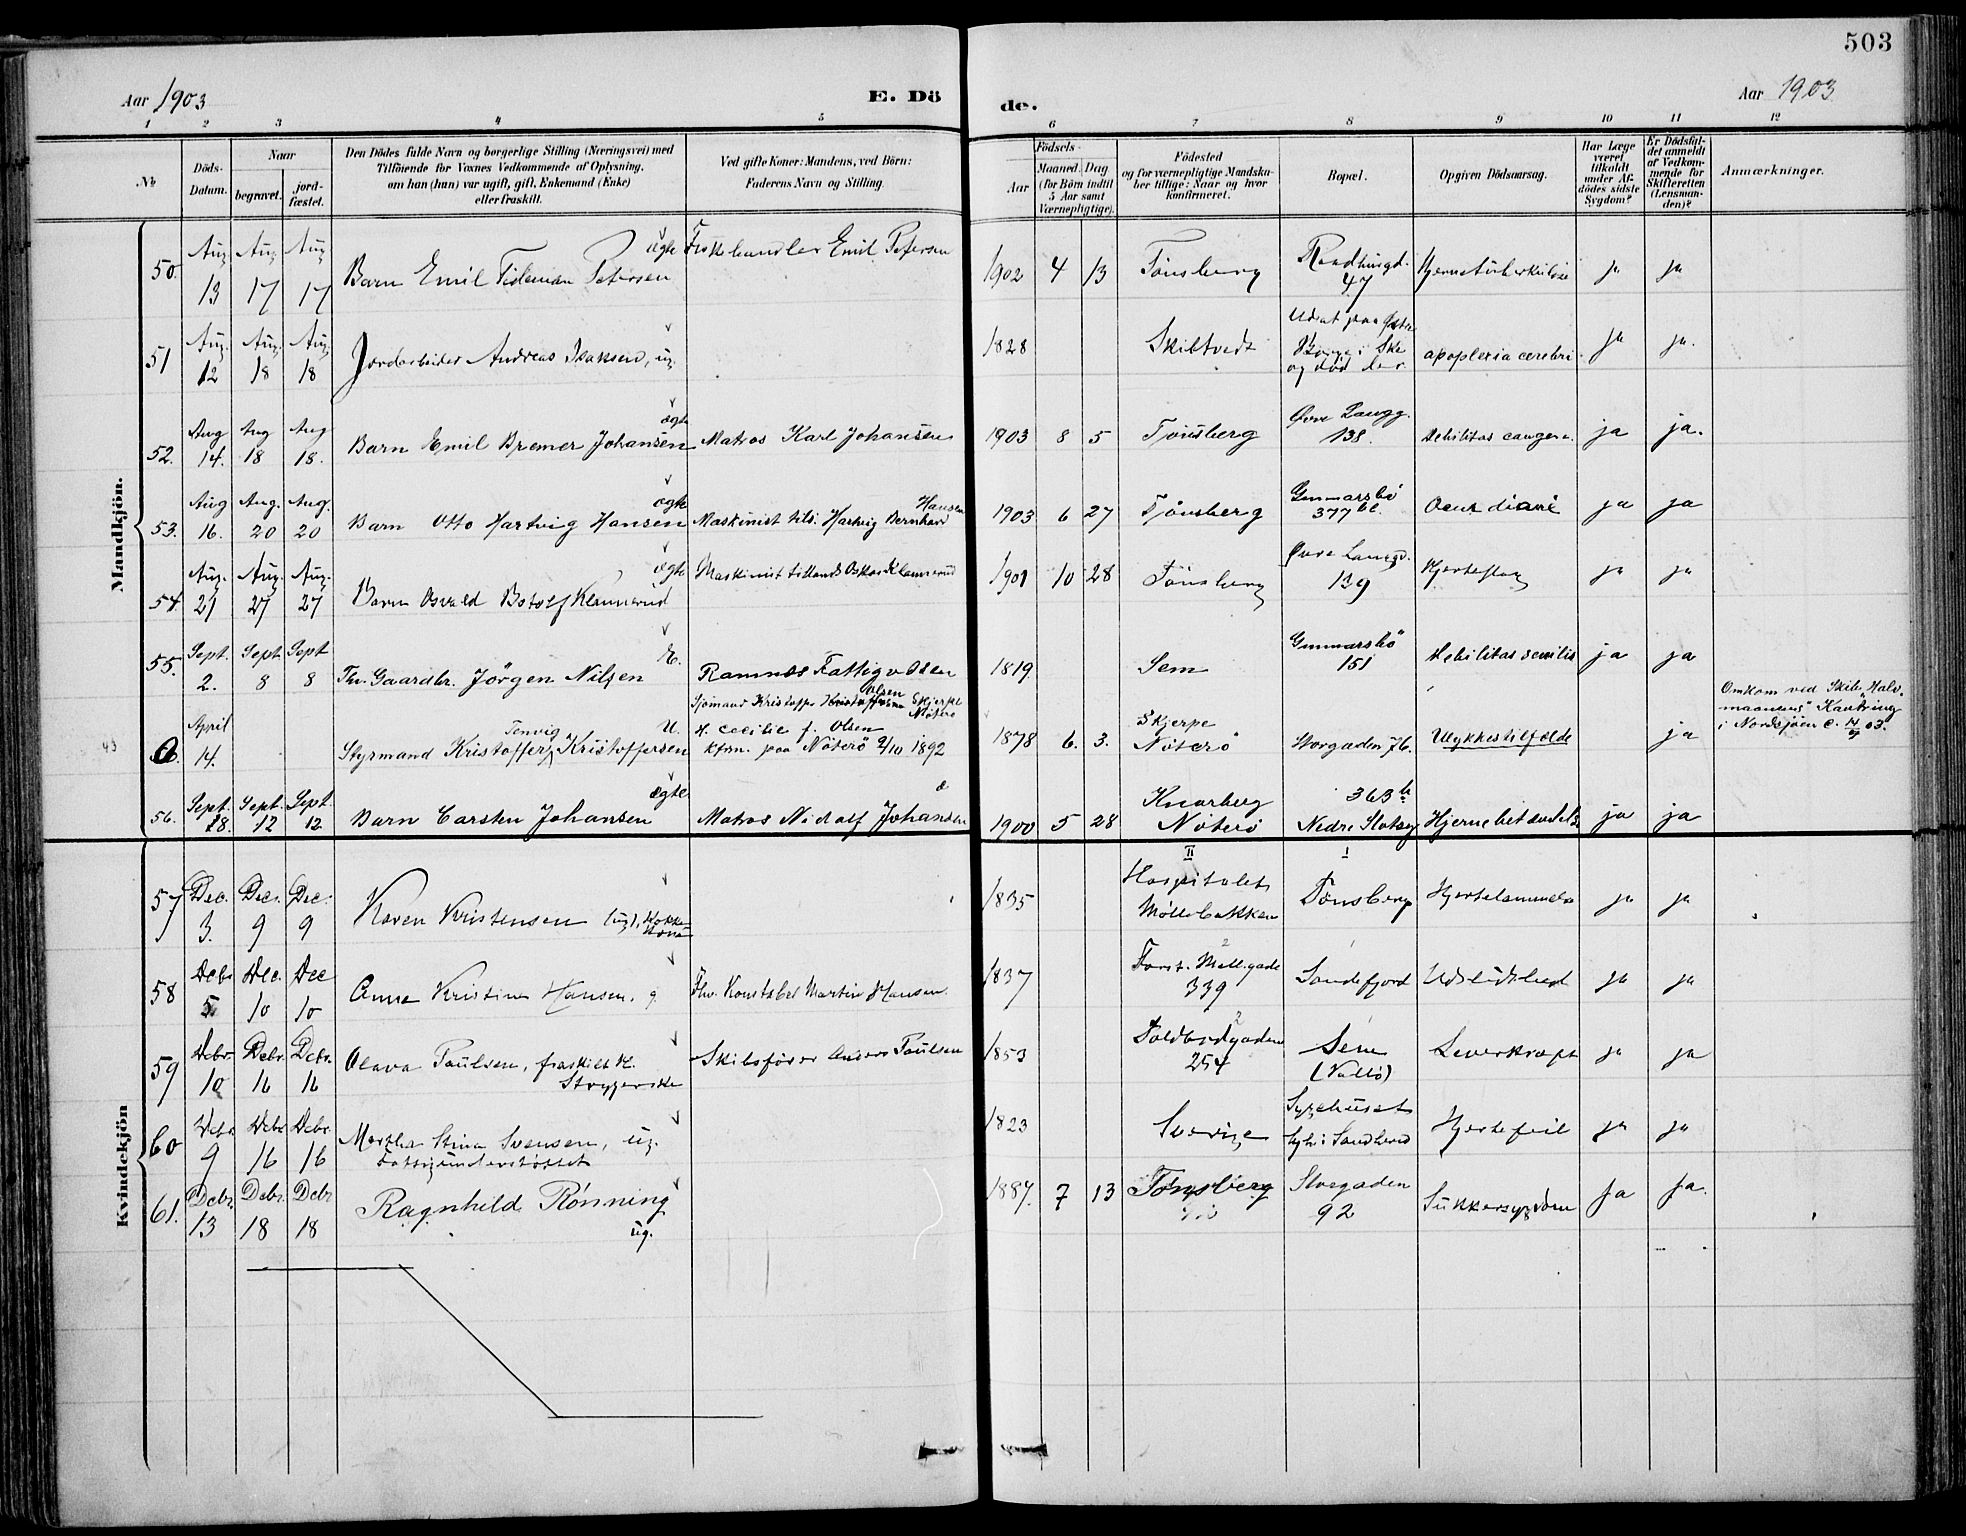 503
Aar 1903
E. Dö
de.
Aar 1903
1 2 3 4 5 6 7 8 9 10 11 12
No
Döds-
Datum.
Naar
begravet.
jord-
fæstet.
Den Dödes fulde Navn og borgerlige Stilling (Næringsvei) med
Tilföiende for Voxnes Vedkommende af Oplysning,
om han (hun) var ugift, gift, Enkemand (Enke)
eller fraskilt.
Ved gifte Koner: Mandens, ved Börn:
Faderens Navn og Stilling.
Födsels-
Aar
Maaned. Dag
(for Börn indtil
5 Aar samt
Værnepligtige).
Födested
og for værnepligtige Mandska-
ber tillige: Naar og hvor
konfirmeret.
Bopæl.
Opgiven Dödsaarsag.
Har Læge
været
tilkaldt
under Af-
dödes sidste
Sygdom?
Er Dödsfal-
det anmeldt
af Vedkom-
mende for
Skifteretten
(Lensman-
den)?
Anmærkninger.
Mandkjön.
50. Aug 13 Aug 17 Aug 17 Barn Emil Tideman Petersen ægte Fiskehandler Emil Petersen 1902 4 13 Tønsberg 47 Hjernetuberkulose ja ja
51 Aug. 12 Aug. 18 Aug. 18 Jordarbeider Andreas Isaksen, ug. 1828 Skiltvedt og død der apoplexia cerebri ja ja.
52. Aug 14. Aug 18 Aug 18. Barn Emil Bremer Johansen ægte Matros Karl Johansen 1903 8 5 Tjønsberg Øvre Langg. 138. debilitas congen. ja ja.
53. Aug 16. Aug. 20 Aug. 20 Barn Otto Hartvig Hansen ægte Maskinist tils. Hartvig Bernhard Hansen 1903 6 27 Tjønsberg Gunnarsbö 377 ja ja
54. Aug. 21 Aug. 27 Aug. 27 Barn Osvald Botolf Klaunerud ægte Maskinist tillands Oskar Klaunerud 1901 10 28 Tønsberg Øvre Langg. 139 Hjerteslag ja ja
55. Sept. 2. Sept 8 Sept 8 Fhv. Gaardbr. Jörgen Nilsen E. Ramnes Fattigvæsen 1819 Sem Gunnarsbö 151 debilitas senilis ja ja
43
April 14. Styrmand Kristoffer Tenvig Kristoffersen U. Sjömand Kristoffer Kristoffersen Olsen Skjerpe Nøterø
H. Cecilie f. Olsen
kfrm. paa Nøterö 2/10 1892 1878 6. 3. Skjerpe Nöterö Storgaden 76. Ulykkestilfælde ja
Omkom ved Skib „Halv-
maanens" Kantring
i Nordsjöen c. 14/4 03.
56. Sept. 18. Sept. 12 Sept. 12 Barn Carsten Johansen ægte Matros Nidolf Johansen 1900 5 28 Knarberg Nöterö 363 b Nedre Slotsg. Hjernebetændelse ja ja
Kvindekjön
57 Dec. 3. Dec. 9 Dec. 9 Karen Kristensen (ug), Kokke kone 1835 II Hospitalet Möllebakken I Tønsberg Hjertelammelse ja ja
58 Debr 5 Dec. 10 Dec 10 Anna Kristine Hansen, g Fhv. Konstabel Martin Hansen. 1837 2 Forst. Møllegade 339 Sandefjord Udslidthed ja ja
59 Debr. 10 Debr. 16 Debr. 16 Olava Paulsen, fraskilt K. Strygerske Skibsfører Anders Paulsen 1853 2 Toldbodgaden 254 Sem (Vallö) Leverkræft ja ja
60 Debr 9 Debr 16 Debr. 16 Martha Stina Svensen, ug. Fattigunderstøttet 1823 Sverige Sygehuset Hjertefeil ja ja
61. Debr. 13 Debr. 18 Debr 18 Ragnhild Rönning ug. 1887. 7 13 Tønsberg Storgaden 92 Sukkersygdom Ja Ja.